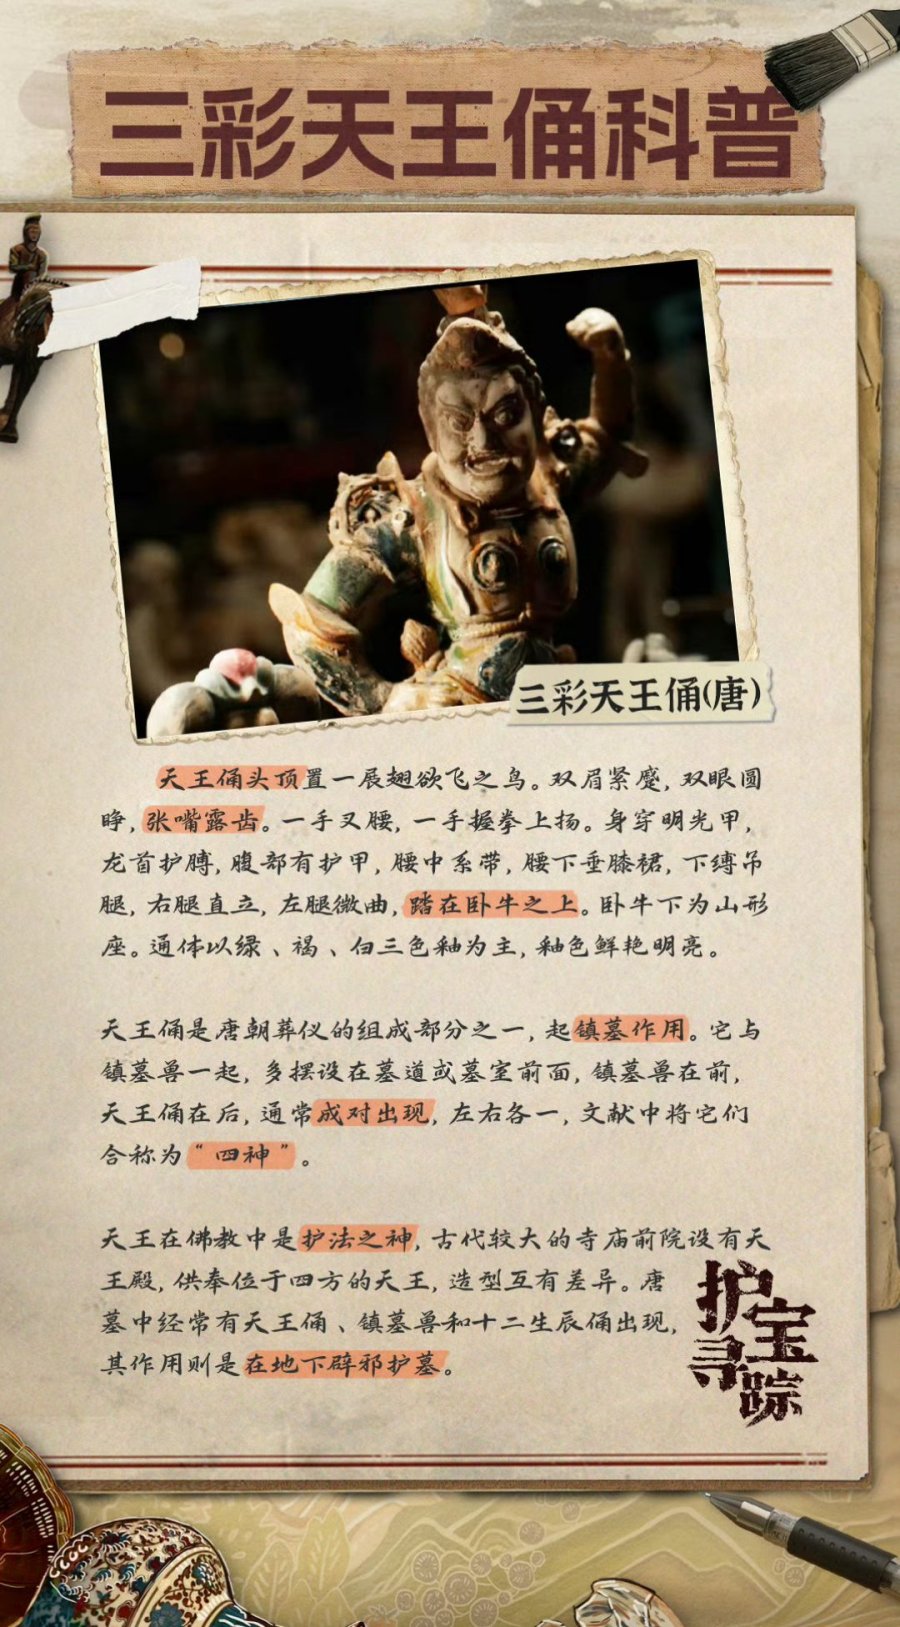 三彩天王俑科普
三彩天王俑(唐)
天王俑头顶置一展翅欲飞之鸟。双眉紧蹙,双眼圆
睁,张嘴露齿。一手叉腰,一手握拳上扬。身穿明光甲,
龙首护膊,腹部有护甲,腰中系带,腰下垂膝裙,下缚吊
腿,右腿直立,左腿微曲,踏在卧牛之上。卧牛下为山形
座。通体以绿、褐、白三色釉为主,釉色鲜艳明亮。
天王俑是唐朝葬仪的组成部分之一,起镇墓作用。它与
镇墓兽一起,多摆设在墓道或墓室前面,镇墓兽在前,
天王俑在后,通常成对出现,左右各一,文献中将它们
合称为“四神”。
天王在佛教中是护法之神,古代较大的寺庙前院设有天
王殿,供奉位于四方的天王,造型互有差异。唐
墓中经常有天王俑、镇墓兽和十二生辰俑出现,
其作用则是在地下辟邪护墓。
护宝
寻踪